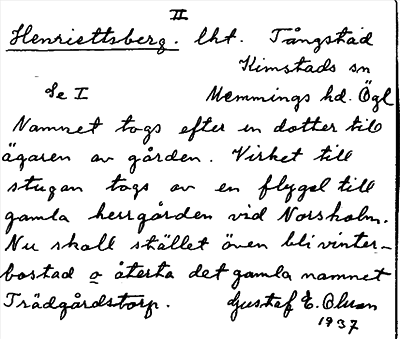 II
Henriettsberg. lht. Tångstad
Kimstads sn
Se I Memmings hd. Ögl
Namnet togs efter en dotter till
ägaren av gården. Virket till
stugan togs av en flygel till
gamla herrgården vid Norsholm.
Nu skall stället även bli vinter-
bostad o återta det gamla namnet
Trädgårdstorp. Gustaf E. Olsson
1937